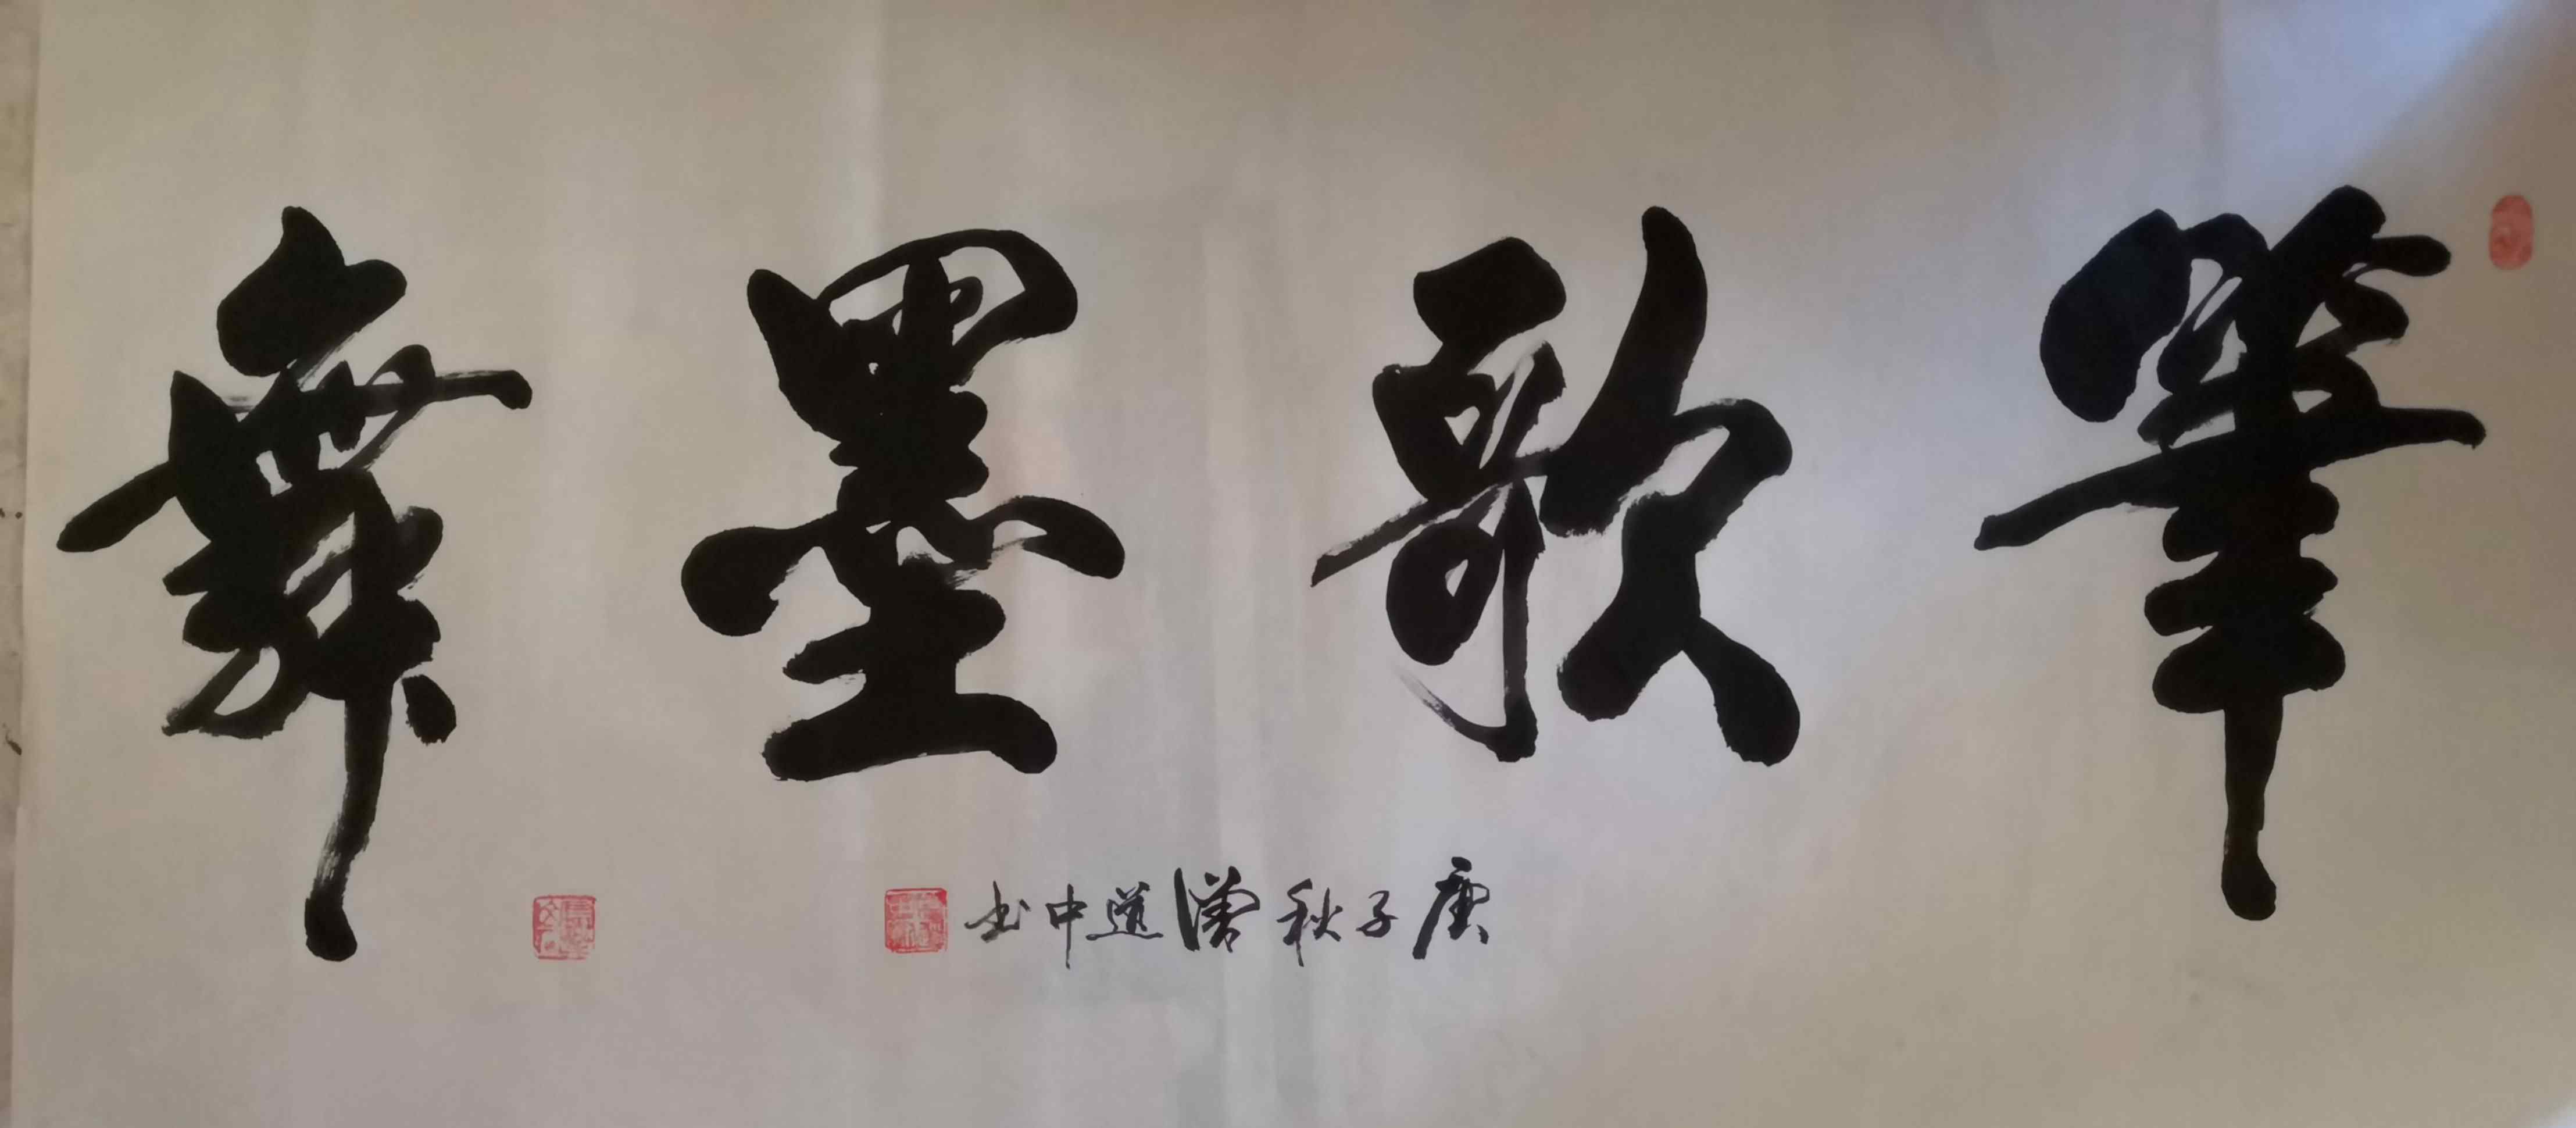 筆歌墨舞
庚子秋潘道中书